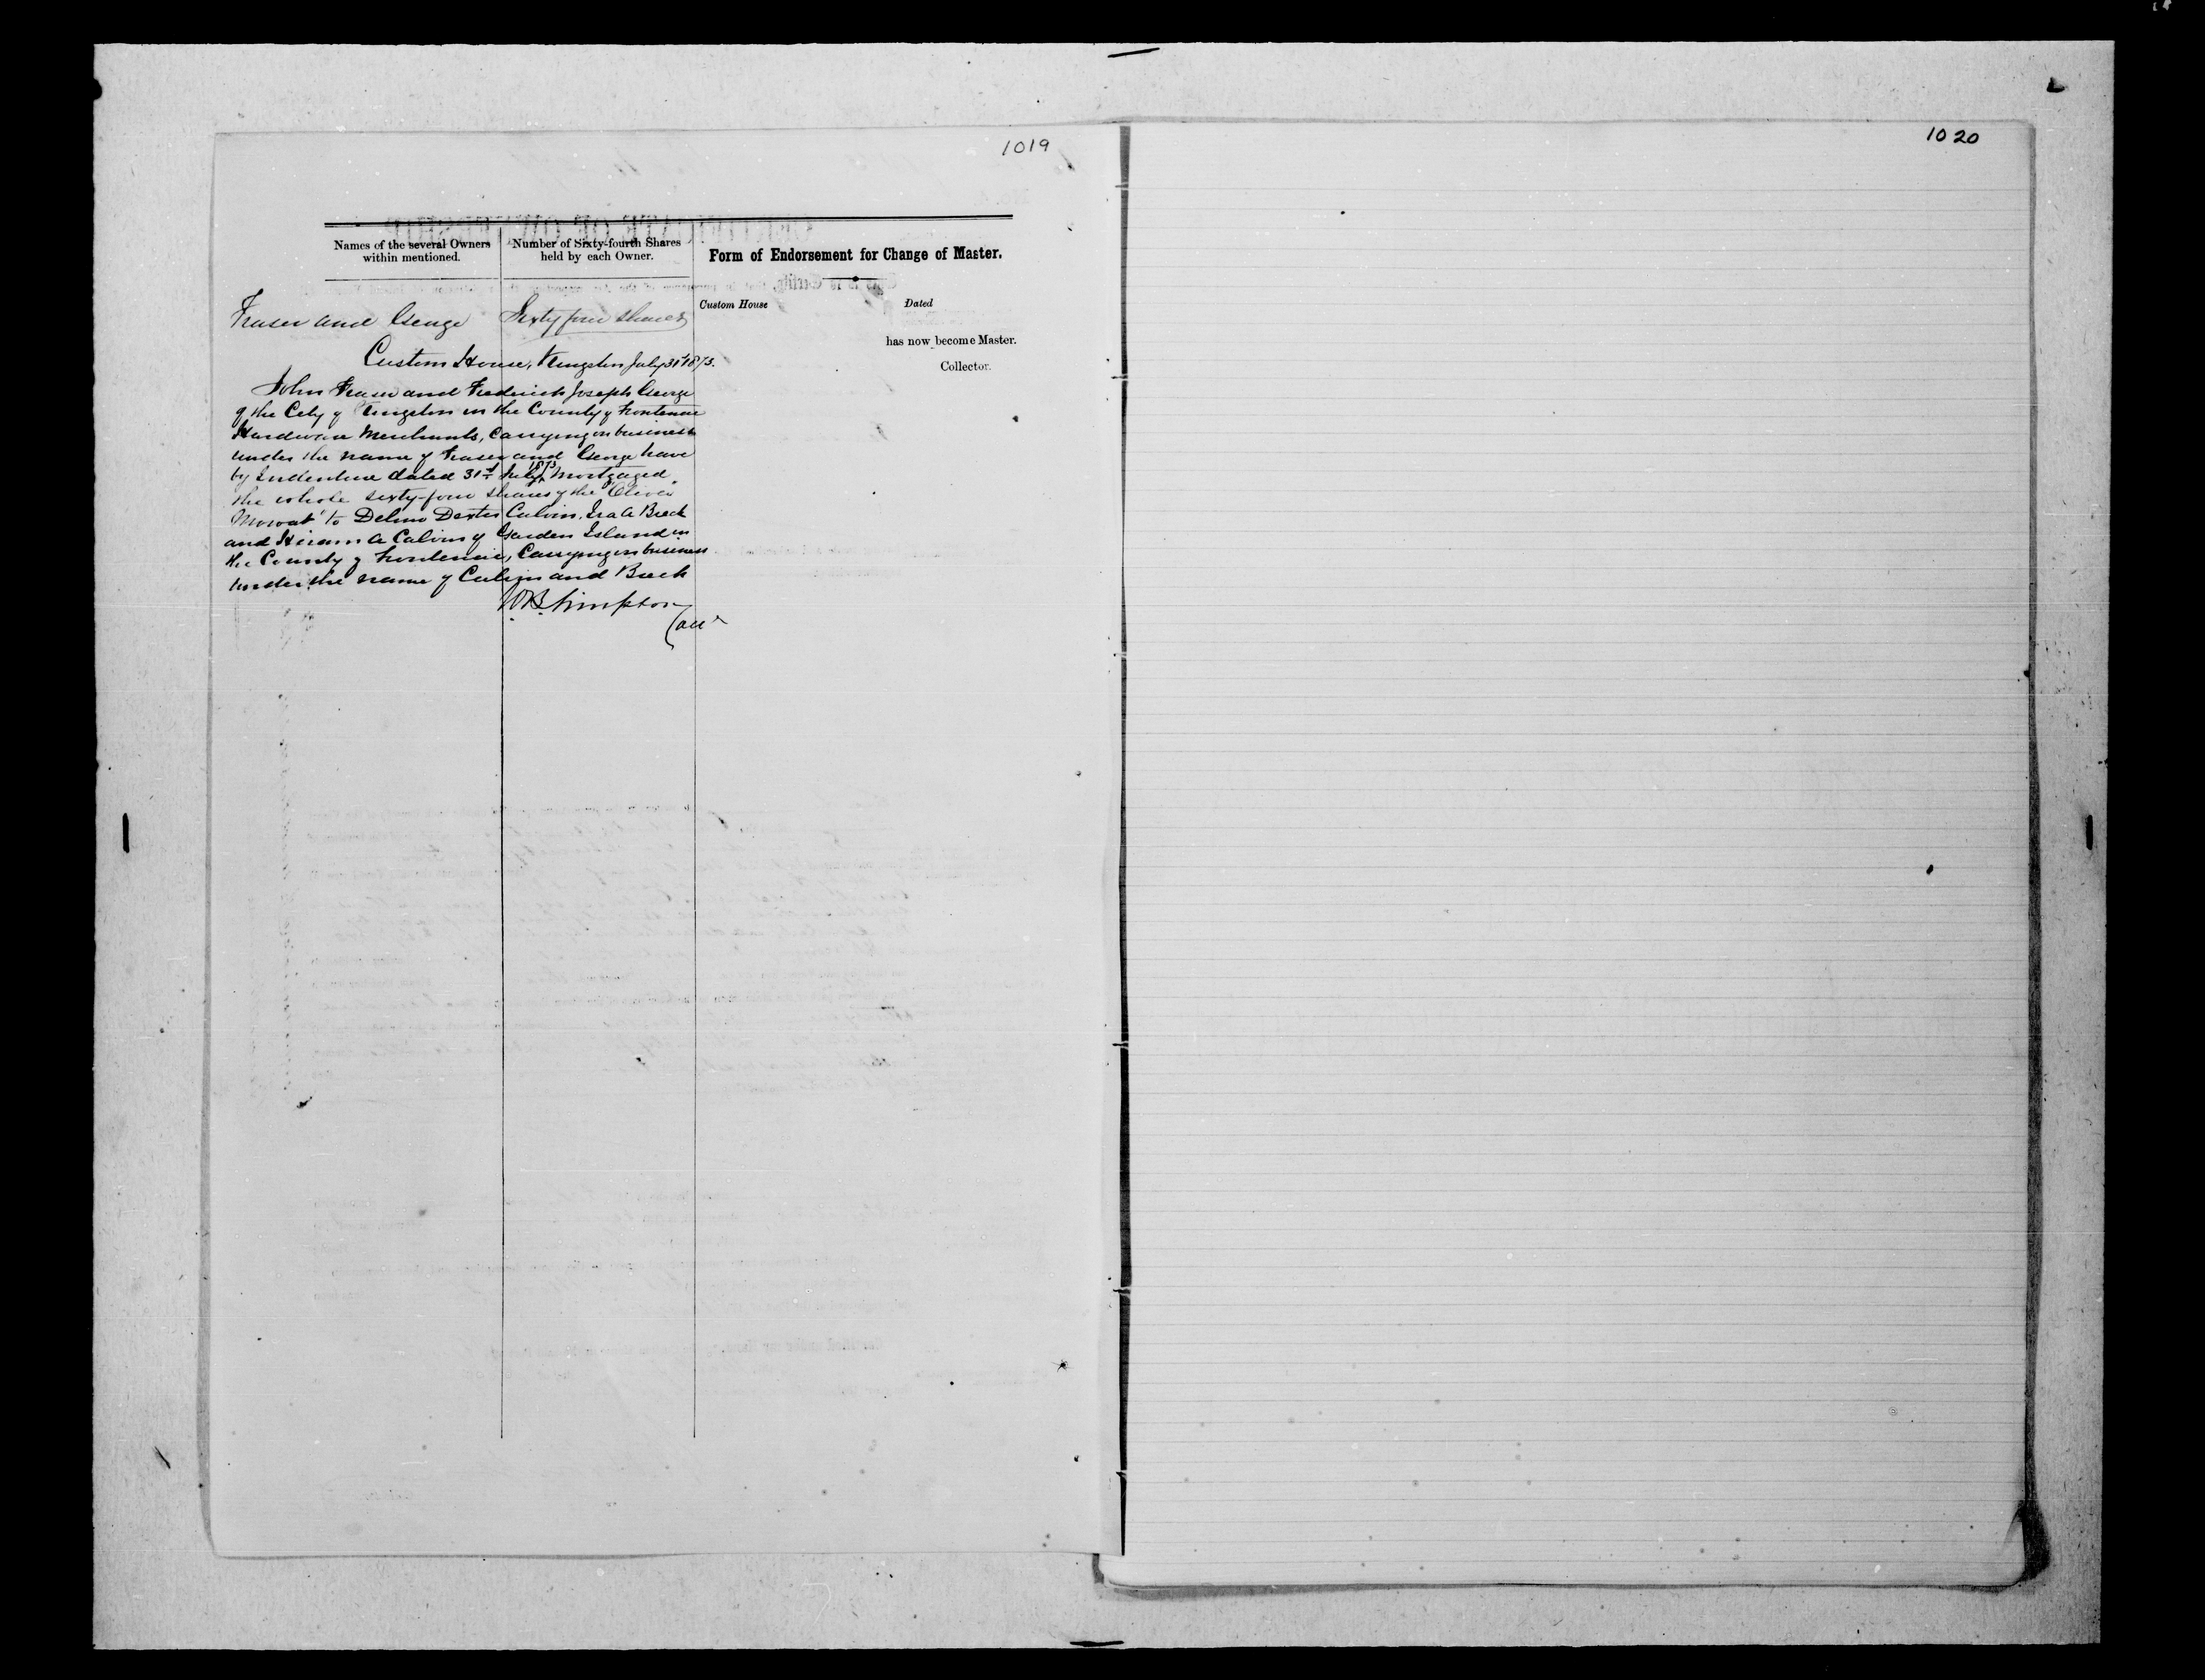 1019
Names of the several Owners
within mentioned.
Number of Sixty-fourth Shares
held by each Owner.
Form of Endorsement for Change of Master.
Custom House
Dated
has now become Master.
Collector.
Fraser and George
Sixty four shares
Custom House, Kingston July 31st 1873.
John Fraser and Frederick Joseph George
of the City of Kingston in the County of Frontenac
Hardware Merchants, Carrying on business
under the name of Fraser and George have
by Indenture dated 31st July 1873 Mortgaged
the whole sixty-four shares of the "Oliver
Mowat" to Delino Dexter Calvin, Ira A Breck
and Hiram A Calvin of Garden Island in
the County of Frontenac, Carrying on business
under the name of Calvin and Breck
W B Simpson
1020